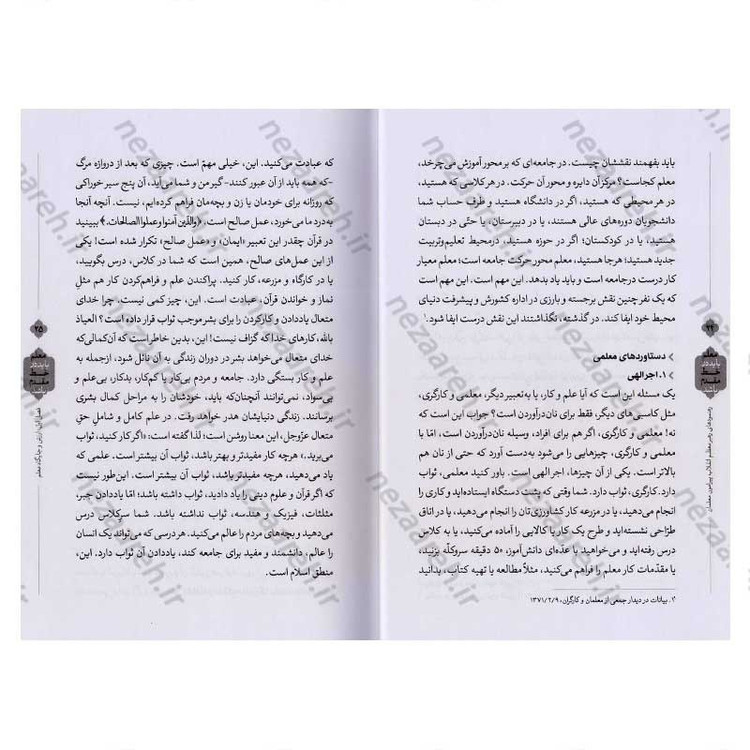 باید بفهمند نقششان چیست. در جامعه‌ای که بر محور آموزش می‌چرخد،
معلم کجاست؟ مرکز آن دایره و محور آن حرکت. در هر کلاسی که هستید،
در هر محیطی که هستید، اگر در دانشگاه هستید و طرف حساب شما
دانشجویان دوره‌های عالی هستند، یا در دبیرستان، یا حتّی در دبستان
هستید، یا در کودکستان؛ اگر در حوزه هستید، در محیط تعلیم‌وتربیت
جدید هستید؛ هرجا هستید، معلم محور حرکت جامعه است؛ معلم معیار
کار درست در جامعه است و باید یاد بدهد. این مهم است. این مهم است
که یک نفر چنین نقش برجسته و بارزی در اداره کشورش و پیشرفت دنیای
محیط خود ایفا کند. در گذشته، نگذاشتند این نقش درست ایفا شود.۱
دستاوردهای معلمی
۱. اجر الهی
یک مسئله این است که آیا علم و کار، یا به‌تعبیر دیگر، معلمی و کارگری،
مثل کاسبی‌های دیگر، فقط برای نان‌درآوردن است؟ جواب این است که
نه! معلمی و کارگری، اگر هم برای افراد، وسیله نان‌درآوردن است، امّا با
معلمی و کارگری، چیزهایی را می‌شود به‌دست آورد که حتی از نان هم
بالاتر است. یکی از آن چیزها، اجر الهی است. باور کنید معلمی، ثواب
دارد. کارگری، ثواب دارد. شما وقتی که پشت دستگاه ایستاده‌اید و کاری را
انجام می‌دهید، یا در مزرعه کار کشاورزی‌تان را انجام می‌دهید، یا در اتاق
طرّاحی نشسته‌اید و طرح یک کار یا کالایی را آماده می‌کنید، یا به کلاس
درس رفته‌اید و می‌خواهید با عدّه‌ای دانش‌آموز، ۵۰ دقیقه سروکلّه بزنید،
یا مقدّمات کار معلم را فراهم می‌کنید، مثلاً مطالعه یا تهیه کتاب، بدانید
۱. بیانات در دیدار جمعی از معلمان و کارگران، ۱۳۷۱/۲/۹
۲۴
رهنمودهای رهبر معظم انقلاب پیرامون معلمان
که عبادت می‌کنید. این، خیلی مهمّ است. چیزی که بعد از دروازه مرگ
-که همه باید از آن عبور کنند- گیر من و شما می‌آید، آن پنج سیر خوراکی
که روزانه برای خودمان یا زن و بچه‌مان فراهم کرده‌ایم، نیست. آنچه آنجا
به‌درد ما می‌خورد، عمل صالح است. ﴿والذین آمنوا و عملوا الصالحات.﴾ ببینید
در قرآن چقدر این تعبیر «ایمان» و «عمل صالح»، تکرار شده است! یکی
از این عمل‌های صالح، همین است که شما در کلاس، درس بگویید،
یا در کارگاه و مزرعه، کار کنید. پراکندن علم و فراهم‌کردن کار هم مثلِ
نماز و خواندن قرآن، عبادت است. این، چیز کمی نیست. چرا خدای
متعال یاددادن و کارکردن را برای بشر موجب ثواب قرار داده است؟ العیاذ
بالله، کارهای خدا که گزاف نیست! این، بدین خاطر است که آن کمالی که
خدای متعال می‌خواهد بشر در دوران زندگی به آن نائل شود، ازجمله به
علم و کار بستگی دارد. جامعه و مردم بی‌کار یا کم‌کار، بدکار، بی‌علم و
بی‌سواد، نمی‌توانند آنچنان‌که باید، خودشان را به مراحل کمال بشری
برسانند. زندگی دنیایشان هدر رفته است. در علم کامل و شاملِ حق
متعال عزّوجل، این معنا روشن است؛ لذا گفته است: «اگر کار کنید، ثواب
می‌برید.» هرچه کار مفیدتر و بهتر باشد، ثواب آن بیشتر است. علمی که
یاد می‌دهید، هرچه مفیدتر باشد، ثواب آن بیشتر است. این‌طور نیست
که اگر قرآن و علوم دینی را یاد دادید، ثواب داشته باشد؛ امّا یاددادن جبر،
مثلثات، فیزیک و هندسه، ثواب نداشته باشد. شما سر کلاس درس
می‌دهید و بچه‌های مردم را عالم می‌کنید. هر درسی که می‌تواند یک انسان
را عالم، دانشمند و مفید برای جامعه کند، یاددادن آن ثواب دارد. این،
منطق اسلام است.
۲۵
فصل اول: ارزش و جایگاه معلم
nezaareh.ir